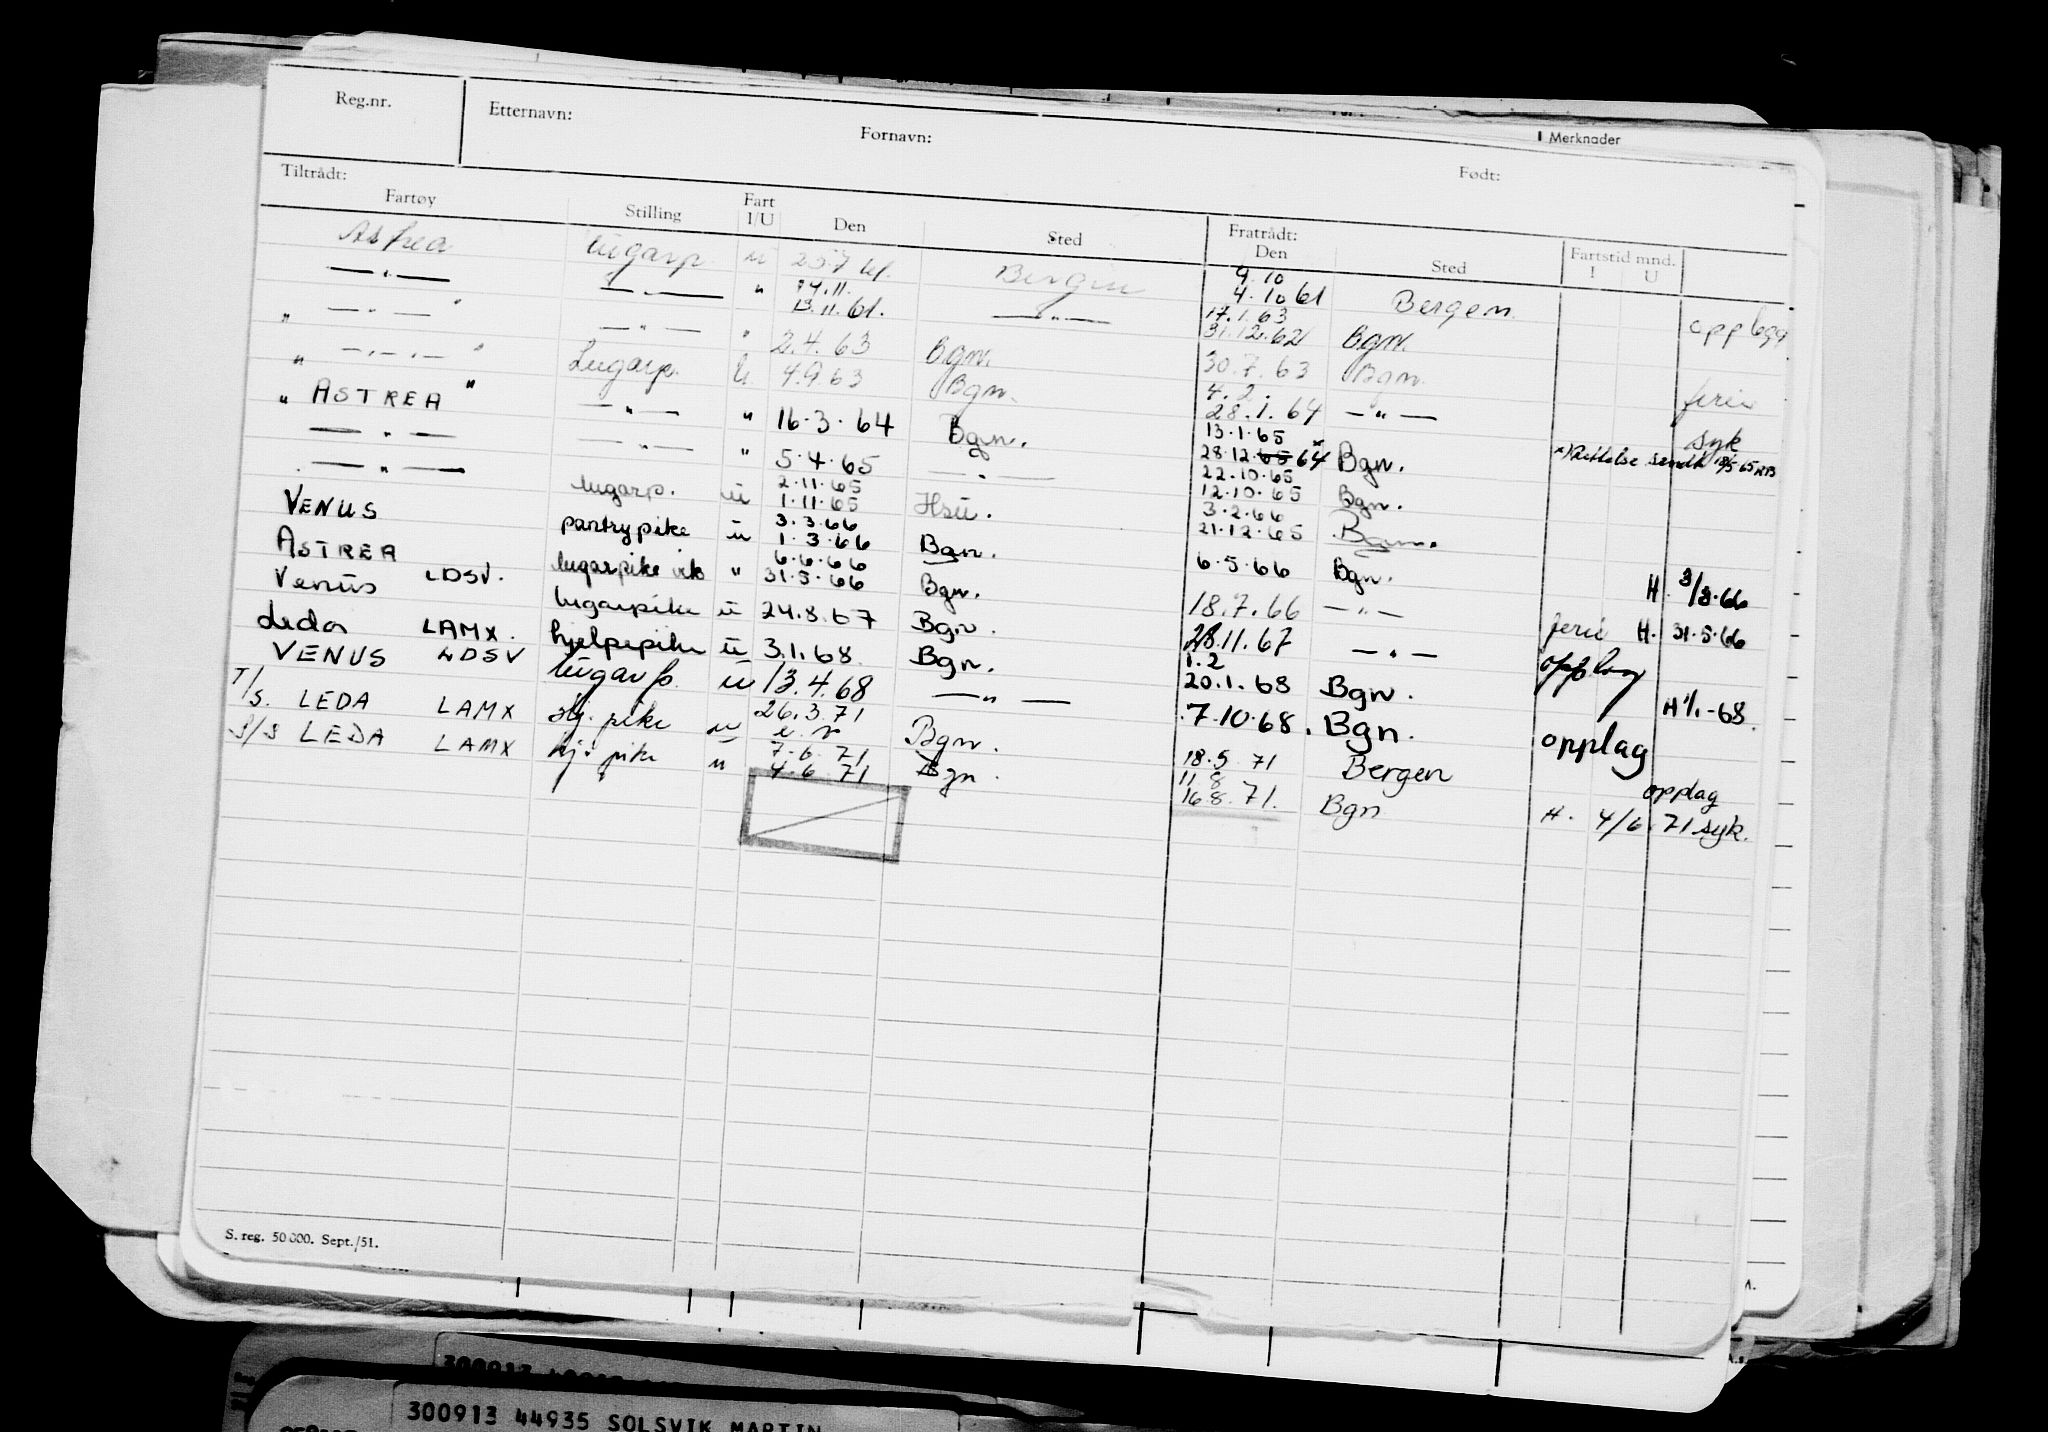 Reg.nr. Etternavn: Fornavn: Merknader
Tiltrådt: Født:
Fartøy Stilling Fart I/U Den Sted Fratrådt: Den Sted Fartstid mnd. I U
Astrea lugarp. u 25.7 61. Bergen 9.10 4.10 61 Bergen opplegg
— " — — " — " 14.11. 13.11.61. — " — 17.1.63 31.12.62 Bgn.
" — " — " — " — " 2.4.63 Bgn. 30.7.63 Bgn. ferie
" — " — " Lugarp. U. 4.9.63 Bgn. 4.2. 28.1.64 — " — syk
" ASTREA " — " — " 16.3.64 Bgn. 13.1.65 28.12.65 64 x Bgn. x) Rettelse sendt 65
— " — — " — " 5.4.65 — " — 22.10.65 12.10.65 Bgn.
— " — lugarp. u 2.11.65 1.11.65 3.2.66 21.12.65 Bgn.
VENUS pantrypike u 3.3.66 1.3.66 Bgn. 6.5.66 Bgn. H. 3/3.66
ASTREA lugarpike " 6.6.66 31.5.66 Bgn. 18.7.66 — " — ferie H. 31.5.66
Venus LDSV. lugarpike u 24.8.67 Bgn. 28.11.67 — " — opplag
Leda LAMX. hjelpepike u 3.1.68 Bgn. 1.2 20.1.68 Bgn. H 1/1-68
VENUS LDSV lugarp. u 13.4.68 — " — 7.10.68. Bgn. opplag
T/S. LEDA LAMX hj. pike u 26.3.71 Bgn. 18.5.71 Bergen opplag
S/S LEDA LAMX hj. pike u 7.6.71 4.6.71 Bgn. 11.8 16.8.71. Bgn H. 4/6.71 syk.
S. reg. 50 000. Sept./51.
300913
300913 44935 SOLSVIK MARTIN